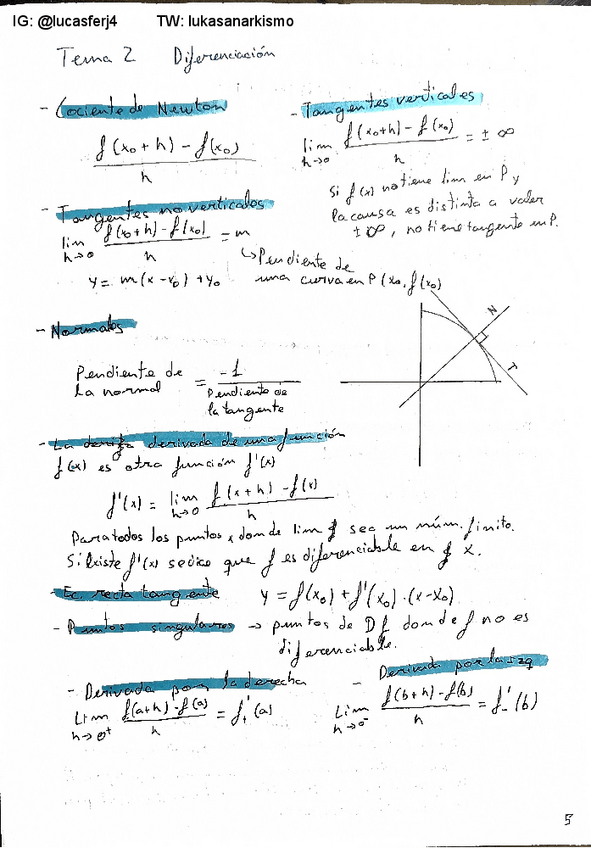 IG: @lucasferj4 TW: lukasanarkismo
Tema 2 Diferenciación
- Cociente de Newton
f(x₀+h) - f(x₀)
h
- Tangentes verticales
lim h→0 f(x₀+h) - f(x₀) / h = ± ∞
Si f(x) no tiene lim en P y
la causa es distinta a valer
±∞, no tiene tangente en P.
- Tangentes no verticales
lim h→0 f(x₀+h) - f(x₀) / h = m
↳ Pendiente de
una curva en P(x₀, f(x₀)
y = m(x - x₀) + y₀
- Normales
Pendiente de la normal = -1 / Pendiente de la tangente
N
T
- La derivada de una función
f(x) es otra función f'(x)
f'(x) = lim h→0 f(x+h) - f(x) / h
Para todos los puntos x donde lim sea un núm. finito.
Si existe f'(x) se dice que f es diferenciable en x.
- Ec. recta tangente y = f(x₀) + f'(x₀)·(x-x₀)
- Puntos singulares → puntos de Df donde f no es
diferenciable.
- Derivada por la derecha
Lim h→0⁺ f(a+h) - f(a) / h = f'₊(a)
- Derivada por la izq
Lim h→0⁻ f(b+h) - f(b) / h = f'₋(b)
5